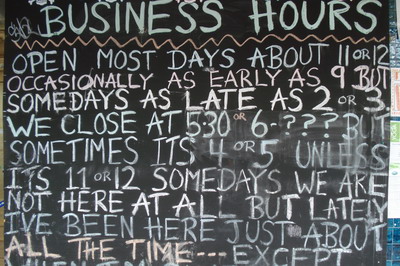 BUSINESS HOURS
OPEN MOST DAYS ABOUT 11 OR 12
OCCASIONALLY AS EARLY AS 9 BUT
SOMEDAYS AS LATE AS 2 OR 3.
WE CLOSE AT 530 OR 6-????BU
SOMETIMES ITS 4 OR 5 UNLESS
ITS 11 OR 12 SOMEDAYS WE ARE
NOT HERE AT ALL BUT LATELY
I'VE BEEN HERE JUST ABOUT
ALL THE TIME--- EXCEPT